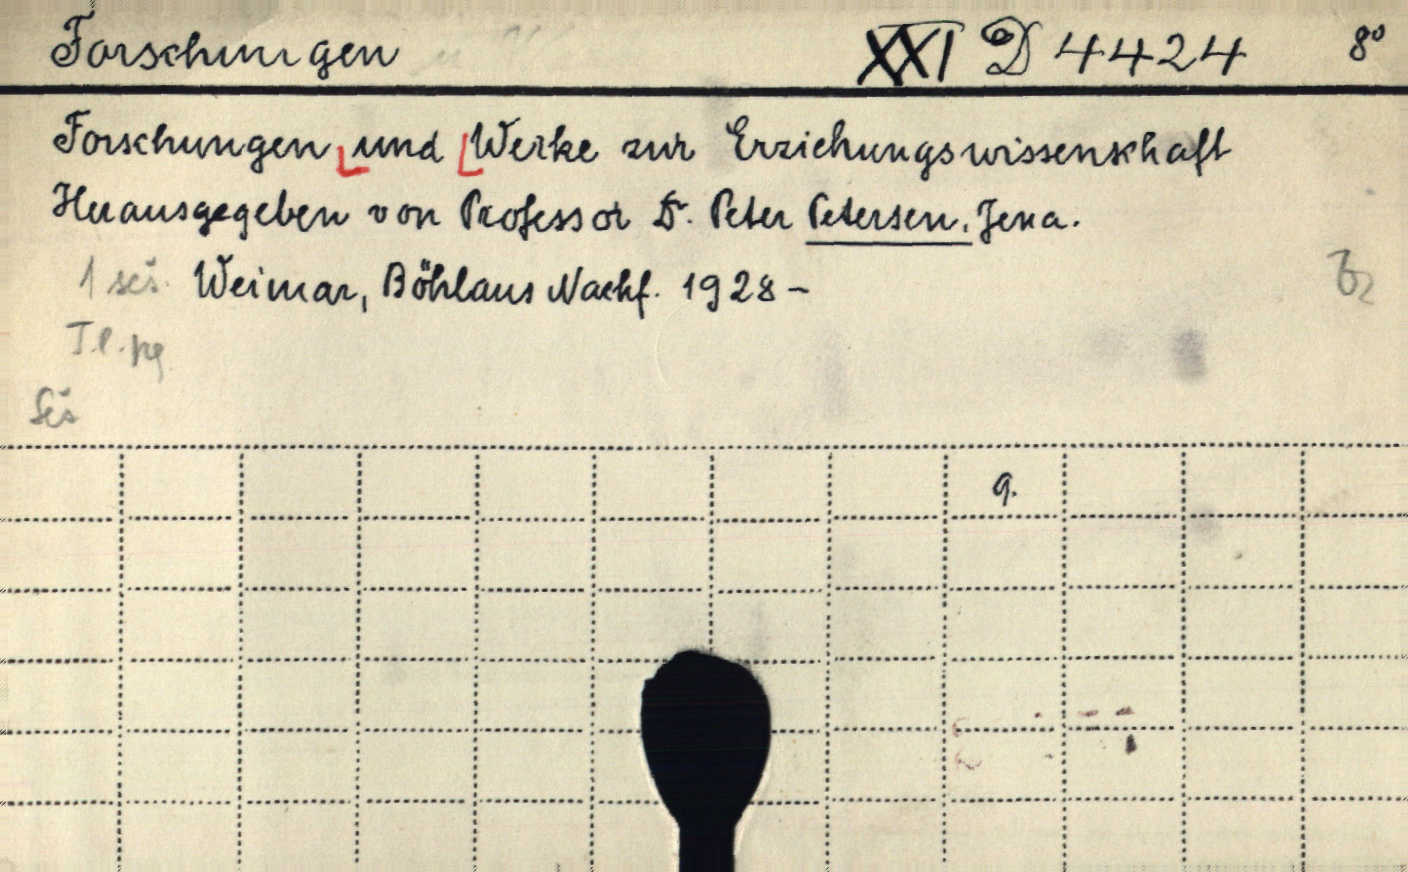 Forschungen XXI D 4424 8°
Forschungen und Werke zur Erziehungswissenschaft
Herausgegeben von Professor Dr. Peter Petersen, Jena.
1 seš. Weimar, Böhlaus Nachf. 1928-
Seš
9.